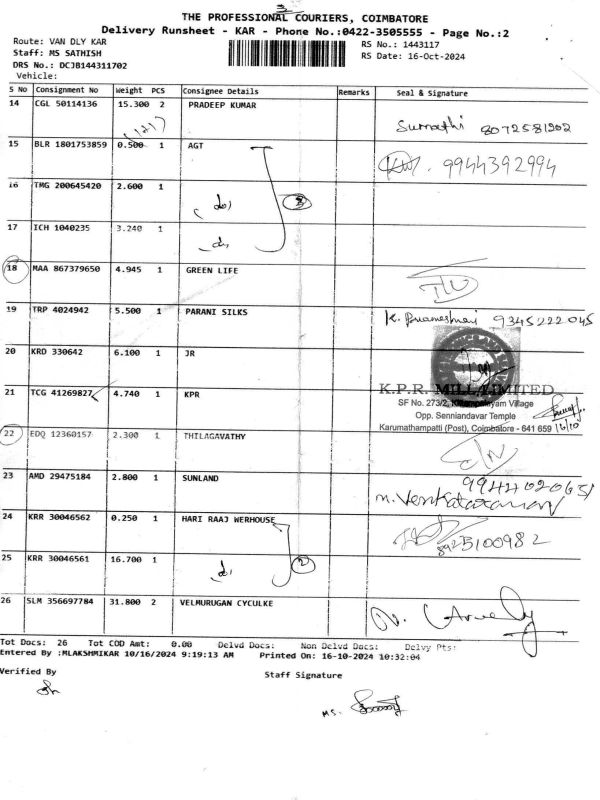 3
THE PROFESSIONAL COURIERS, COIMBATORE
Delivery Runsheet - KAR - Phone No.:0422-3505555 - Page No.:2
Route: VAN DLY KAR RS No.: 1443117
Staff: MS SATHISH RS Date: 16-Oct-2024
DRS No.: DCJB144311702
Vehicle:
S No Consignment No Weight PCS Consignee Details Remarks Seal & Signature
14 CGL 50114136 15.300 2 PRADEEP KUMAR
(1/21) Sumathi 8072581202
15 BLR 1801753859 0.500 1 AGT 9944392994
16 TMG 200645420 2.600 1
(do) 3
17 ICH 1040235 3.240 1
18 MAA 867379650 4.945 1 GREEN LIFE
19 TRP 4024942 5.500 1 PARANI SILKS K. 9345222045
20 KRD 330642 6.100 1 JR
21 TCG 41269827 4.740 1 KPR
K.P.R. MILL LIMITED
SF No. 273/2, Kittampalayam Village
Opp. Senniandavar Temple
Karumathampatti (Post), Coimbatore - 641 659 16/10
22 EDQ 12360157 2.300 1 THILAGAVATHY
23 AMD 29475184 2.800 1 SUNLAND 9944020651
n. Venkataraman
24 KRR 30046562 0.250 1 HARI RAAJ WERHOUSE
8925100982
25 KRR 30046561 16.700 1
2
26 SLM 356697784 31.800 2 VELMURUGAN CYCULKE
Tot Docs: 26 Tot COD Amt: 0.00 Delvd Docs: Non Delvd Docs: Delvy Pts:
Entered By :MLAKSHMIKAR 10/16/2024 9:19:13 AM Printed On: 16-10-2024 10:32:04
Verified By Staff Signature
MS.